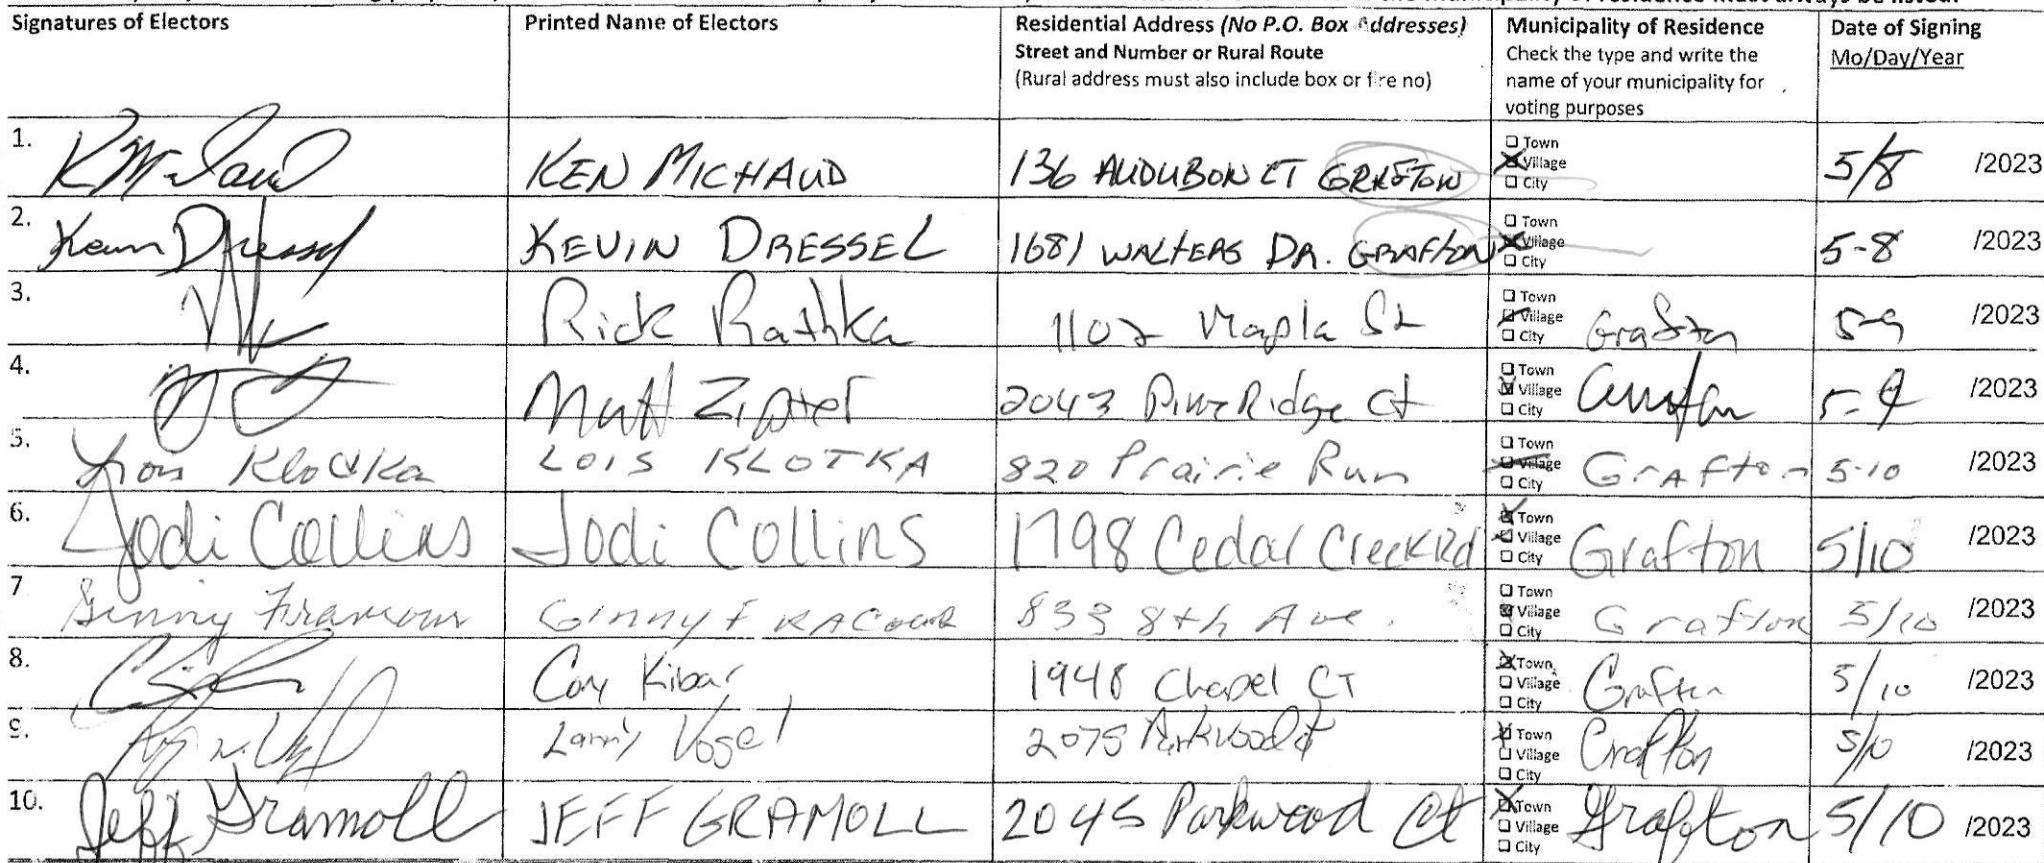 Signatures of Electors Printed Name of Electors Residential Address (No P.O. Box Addresses) Municipality of Residence Date of Signing
Street and Number or Rural Route Check the type and write the Mo/Day/Year
(Rural address must also include box or fire no) name of your municipality for
voting purposes
1. KEN MICHAUD 136 AUDUBON CT GRAFTON Town Village City 5/8 /2023
2. Kevin Dressel KEVIN DRESSEL 1681 WALTERS DR. GRAFTON Town Village City 5-8 /2023
3. Rick Rathka 1102 Maple St Town Village City Grafton 5-9 /2023
4. Matt Zipter 2043 Pine Ridge Ct Town Village City Grafton 5-9 /2023
5. Lois Klotka LOIS KLOTKA 820 Prairie Run Town Village City Grafton 5-10 /2023
6. Jodi Collins Jodi Collins 1798 Cedar Creek Rd Town Village City Grafton 5/10 /2023
7 Ginny Ginny 833 8th Ave. Town Village City Grafton 5/10 /2023
8. Kibar 1948 Chapel CT Town Village City Grafton 5/10 /2023
9. Larry Vogel 2075 Parkwood Ct Town Village City Grafton 5/10 /2023
10. Jeff Gramoll JEFF GRAMOLL 2045 Parkwood Ct Town Village City Grafton 5/10 /2023